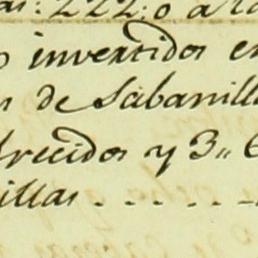 as: 222: o a la
o invertidos en
s de Sabanill
frecidos y 3,, 6
illas . . . . -